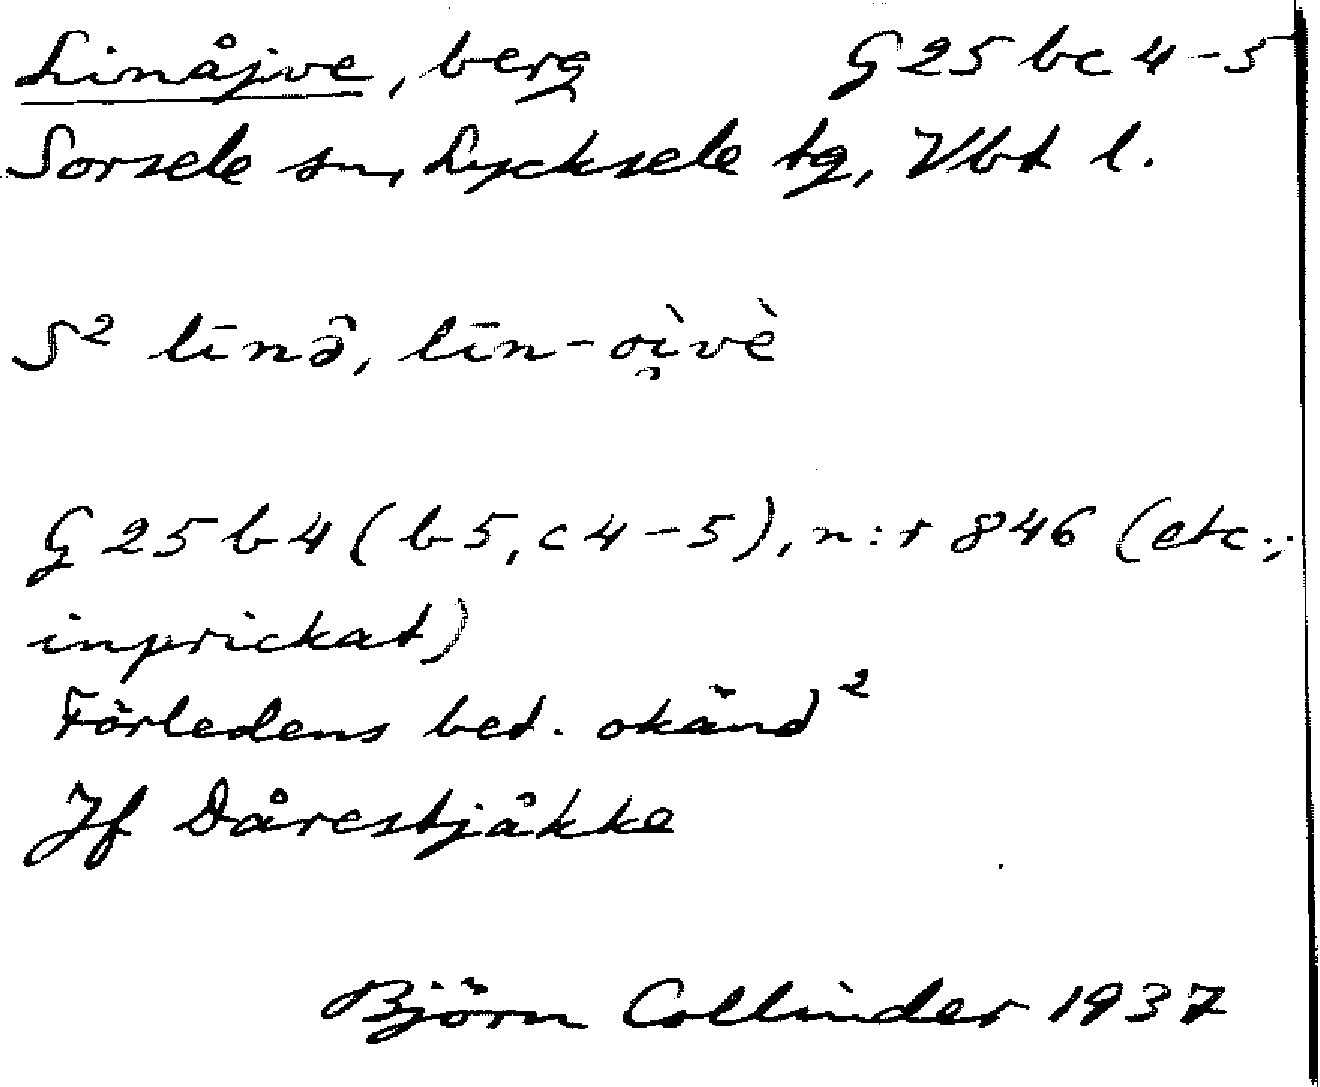 Linåjve, berg G25 bc 4-5
Sorsele sn, Lycksele tg, Vbt l.
S² līnə̂, līn-oi̯vè
G 25 b 4 (b5, c4-5), n:r 846 (etc.;
inprickat)
Förledens bet. okänd²
Jf Dårestjåkke
Björn Collinder 1937